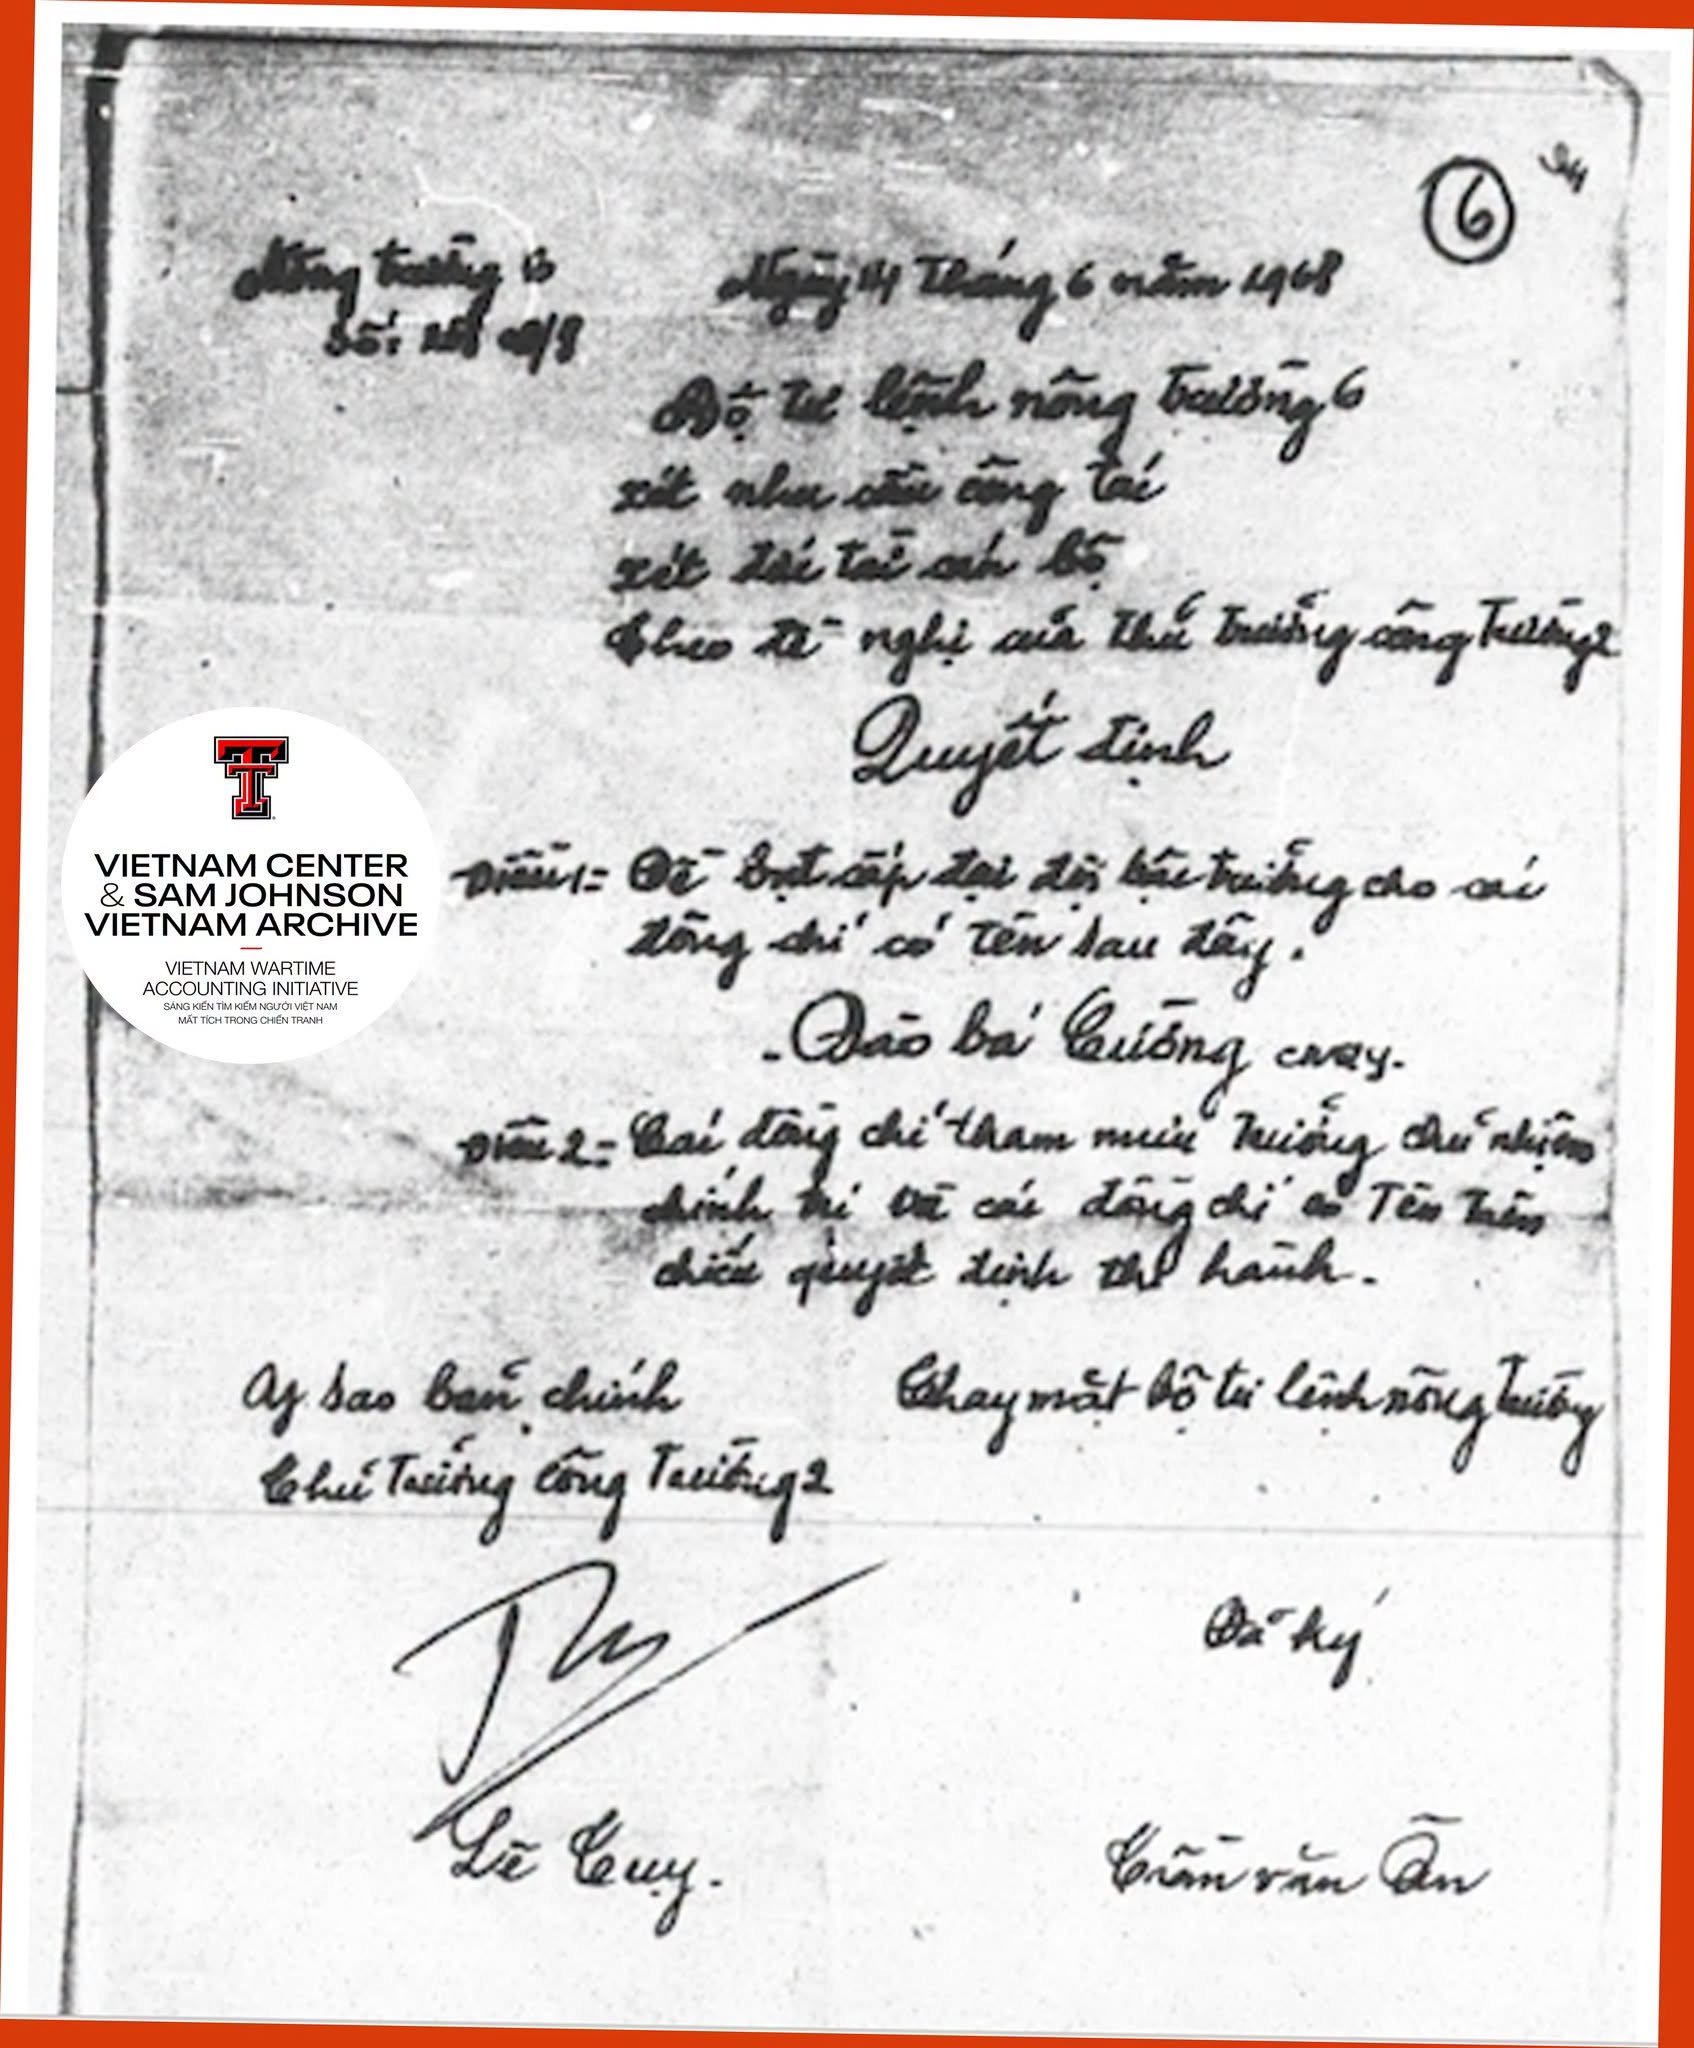 6
Nông trường 6
Ngày 14 Tháng 6 năm 1968
Số:
Bộ tư lệnh nông trường 6
xét nhu cầu công tác
xét đức tài cán bộ
Theo đề nghị của thủ trưởng công trường 2
Quyết định
Điều 1= Đề bạt cấp đại đội bậc trưởng cho các
đồng chí có tên sau đây.
- Đào bá Cường
Điều 2= Các đồng chí tham mưu trưởng chủ nhiệm
chính trị và các đồng chí có tên trên
chiếu quyết định thi hành.
sao bản chính
Thay mặt bộ tư lệnh nông trường
Thủ trưởng công trường 2
Đã ký
Lê Tuy.
Trần văn Ân
VIETNAM CENTER
& SAM JOHNSON
VIETNAM ARCHIVE
VIETNAM WARTIME
ACCOUNTING INITIATIVE
SÁNG KIẾN TÌM KIẾM NGƯỜI VIỆT NAM
MẤT TÍCH TRONG CHIẾN TRANH